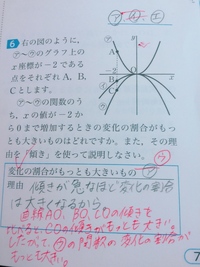 ⑦ ④ ㊀
6 右の図のように、
㋐〜㋒のグラフ上の
x座標が−2である
点をそれぞれA、B、
Cとします。
㋐〜㋒の関数のう
ち、xの値が−2か
ら0まで増加するときの変化の割合がもっ
とも大きいものはどれですか。また、その理
由を「傾き」を使って説明しなさい。
変化の割合がもっとも大きいもの
理由 傾きが急なほど変化の割合
は大きくなるから
直線AO、BO、COの傾きを
比べると、COの傾きがもっとも大きい。
したがって、㋒の関数の変化の割合が
もっとも大きい。
y
A
−2
O
x
B
C
7